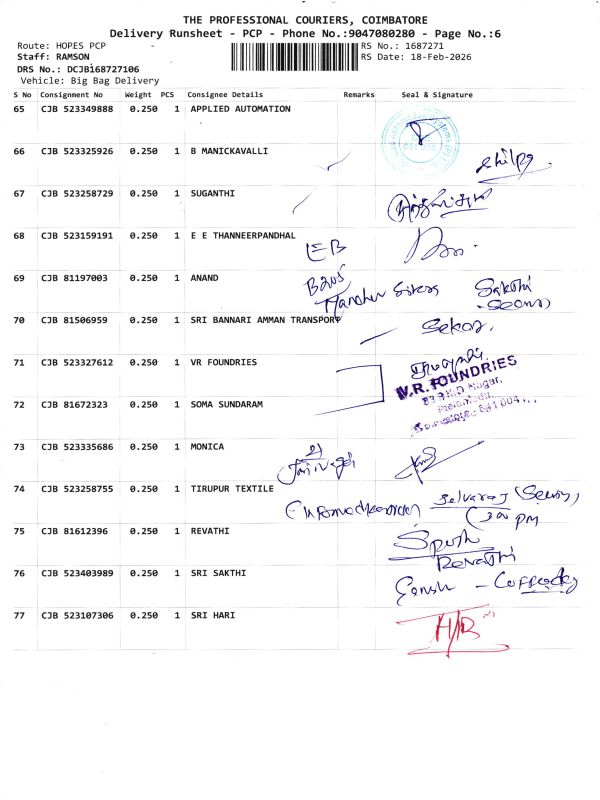 THE PROFESSIONAL COURIERS, COIMBATORE
Delivery Runsheet - PCP - Phone No.:9047080280 - Page No.:6
Route: HOPES PCP
RS No.: 1687271
Staff: RAMSON
RS Date: 18-Feb-2026
DRS No.: DCJB168727106
Vehicle: Big Bag Delivery
S No Consignment No Weight PCS Consignee Details Remarks Seal & Signature
65 CJB 523349888 0.250 1 APPLIED AUTOMATION
66 CJB 523325926 0.250 1 B MANICKAVALLI
Shilpa
67 CJB 523258729 0.250 1 SUGANTHI
68 CJB 523159191 0.250 1 E E THANNEERPANDHAL
EB
69 CJB 81197003 0.250 1 ANAND
Sakthi
70 CJB 81506959 0.250 1 SRI BANNARI AMMAN TRANSPORT
Sekar.
71 CJB 523327612 0.250 1 VR FOUNDRIES
V.R. FOUNDRIES
72 CJB 81672323 0.250 1 SOMA SUNDARAM
73 CJB 523335686 0.250 1 MONICA
74 CJB 523258755 0.250 1 TIRUPUR TEXTILE
Selvaraj
75 CJB 81612396 0.250 1 REVATHI
Revathi
76 CJB 523403989 0.250 1 SRI SAKTHI
77 CJB 523107306 0.250 1 SRI HARI